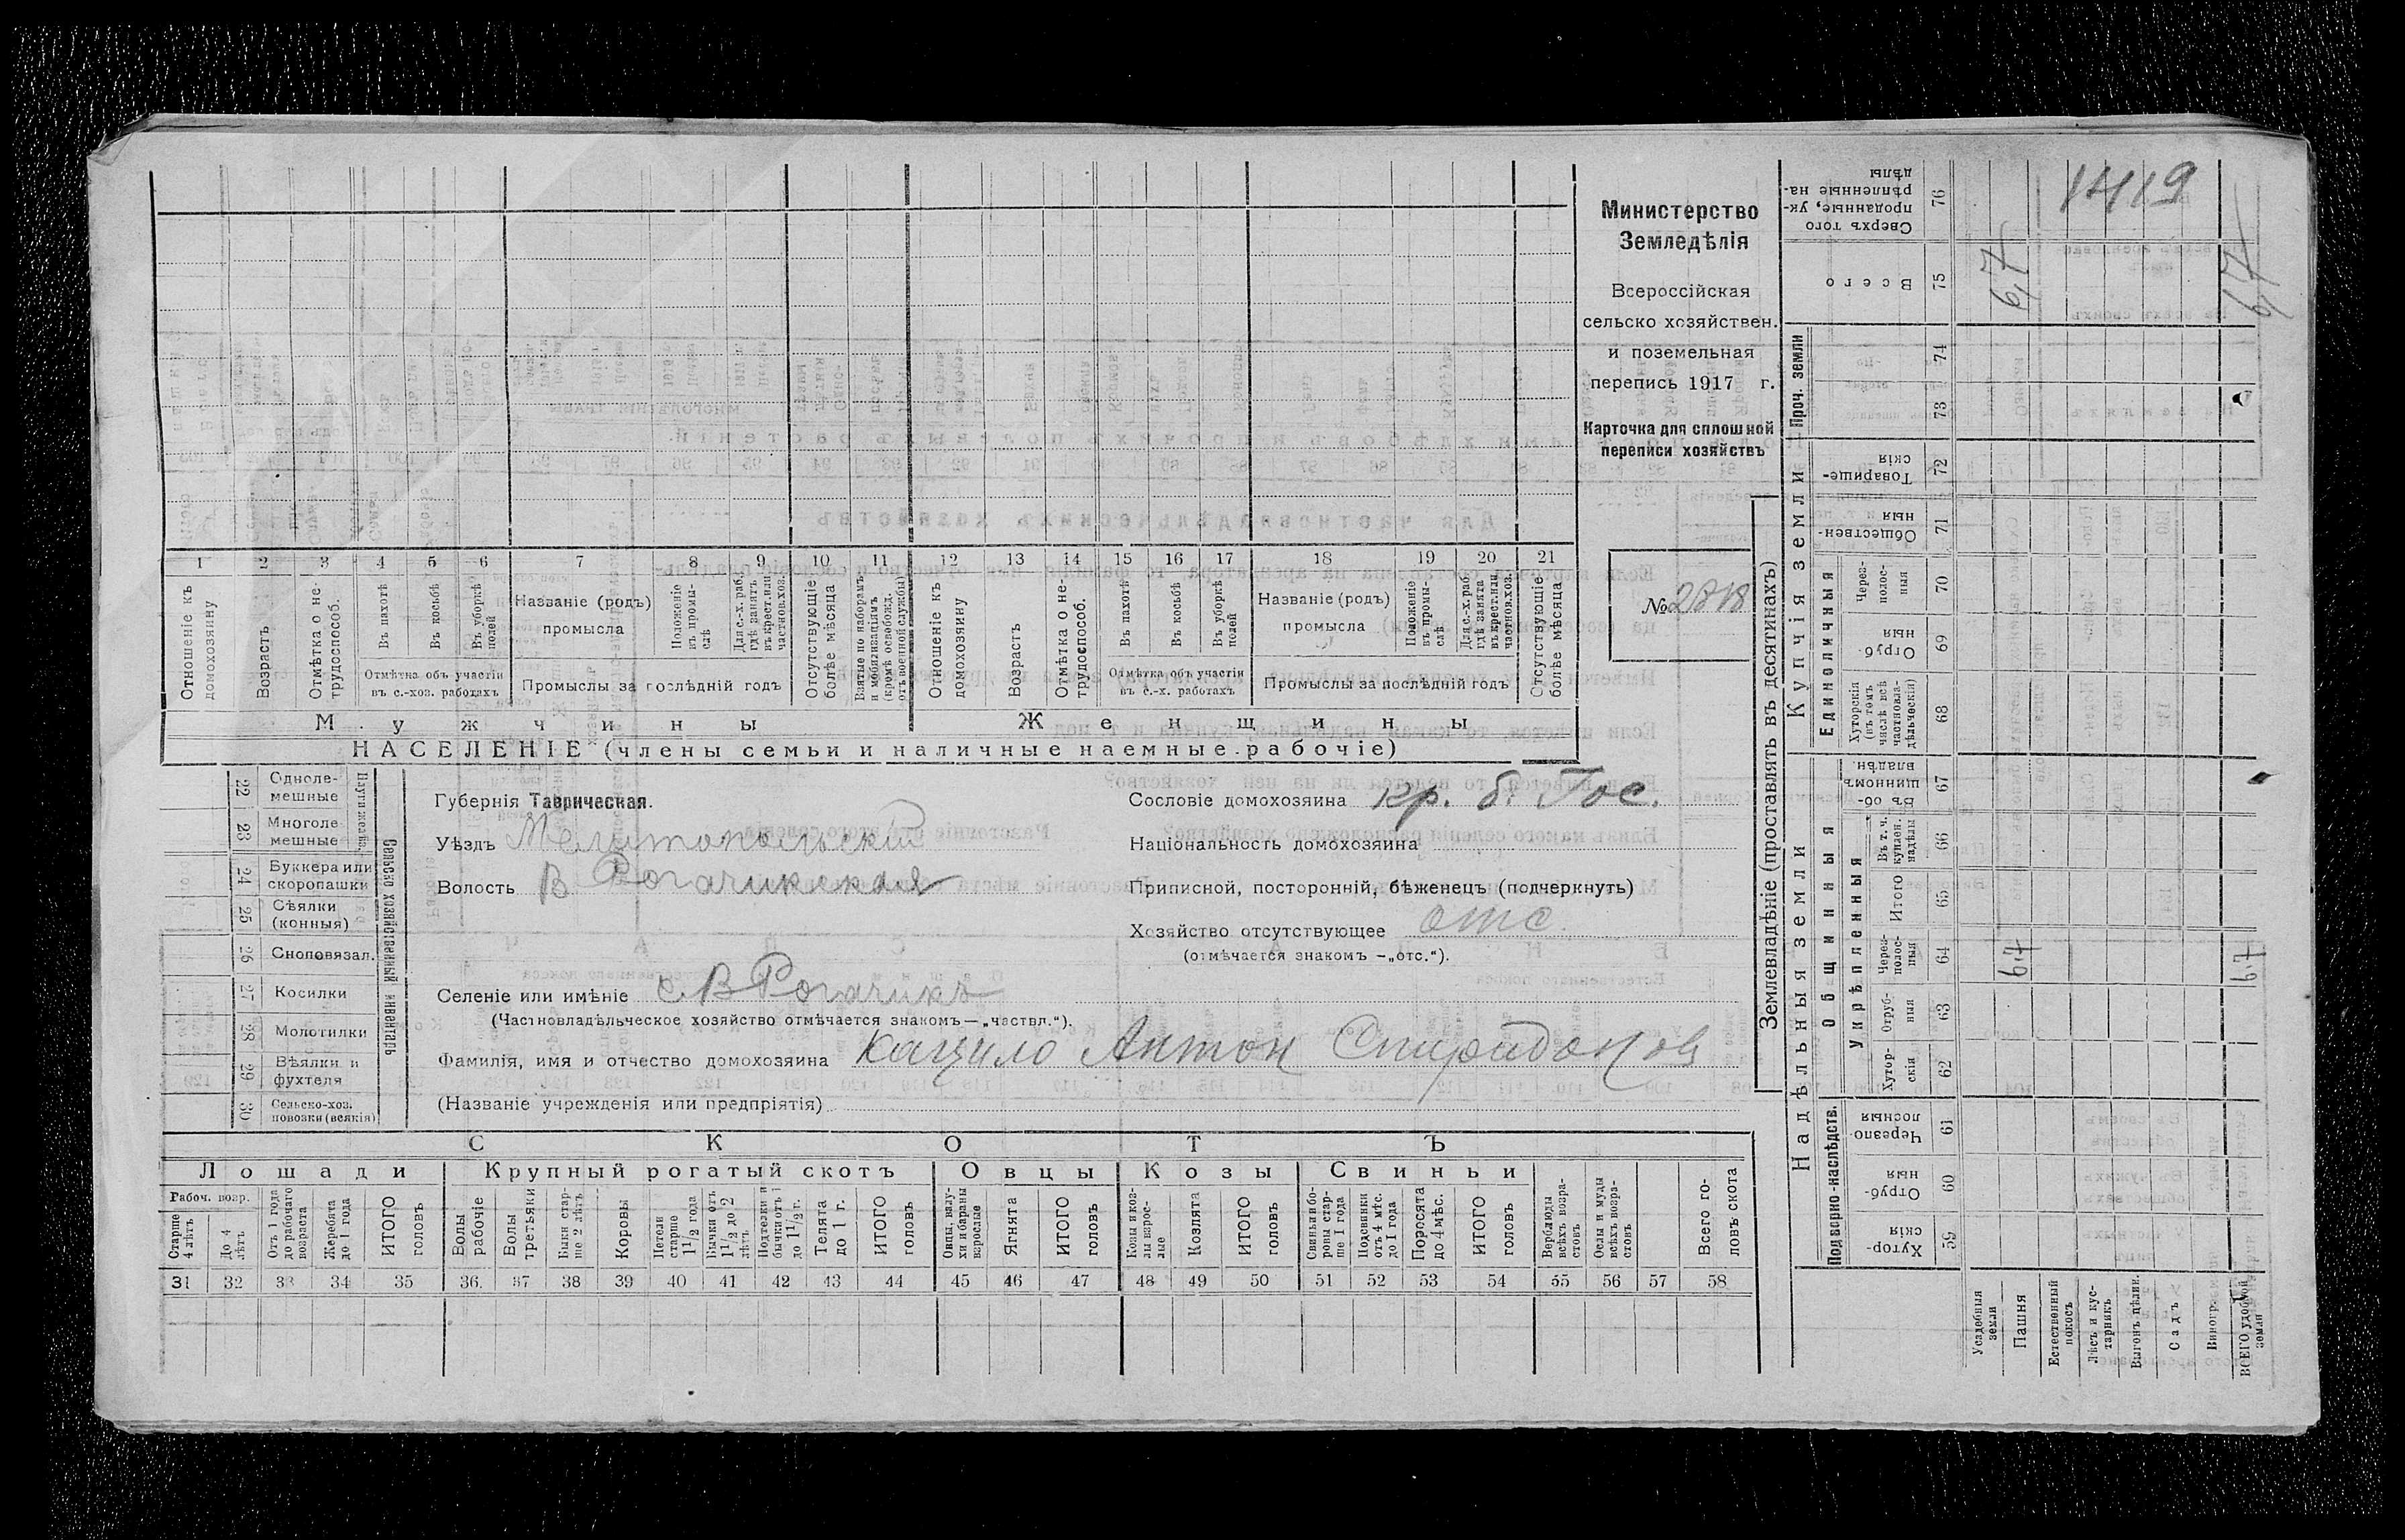 Министерство
Земледѣлія
Всероссійская
сельско хозяйствен.
и поземельная
перепись 1917 г.
Карточка для сплошной
переписи хозяйствъ
№ 2818
1 2 3 4 5 6 7 8 9 10 11 12 13 14 15 16 17 18 19 20 21
Отношеніе къ домохозяину
Возрастъ
Отмѣтка о не-трудоспособ.
Въ пахотѣ
Въ косьбѣ
Въ уборкѣ полей
Отмѣтка объ участіи
въ с.-хоз. работахъ
Названіе (родъ)
промысла
Положеніе въ промы-слѣ
Для с.-х. раб. гдѣ занятъ въ крест. или частнов. хоз.
Промыслы за послѣдній годъ
Отсутствующіе болѣе мѣсяца
Взятые по наборамъ и мобилизаціямъ (кромѣ освобожд. отъ военной службы)
Отношеніе къ домохозяину
Возрастъ
Отмѣтка о не-трудоспособ.
Въ пахотѣ
Въ косьбѣ
Въ уборкѣ полей
Отмѣтка объ участіи
въ с.-х. работахъ
Названіе (родъ)
промысла
Положеніе въ промы-слѣ
Для с.-х. раб. гдѣ занята въ крест. или частнов. хоз.
Промыслы за послѣдній годъ
Отсутствующіе болѣе мѣсяца
Мужчины Женщины
НАСЕЛЕНІЕ (члены семьи и наличные наемные рабочіе)
22 Одноле-мешные
23 Многоле мешные
24 Буккера или скоропашки
25 Сѣялки (конныя)
26 Сноповязал.
27 Косилки
28 Молотилки
29 Вѣялки и фухтеля
30 Сельско-хоз. повозки (всякія)
Сельско хозяйственный инвентарь
Губернія Таврическая.
Уѣздъ Мелитопольскій
Волость В Рогачикская
Селеніе или имѣніе с. В Рогачикъ
(Частновладѣльческое хозяйство отмѣчается знакомъ — „частвл.“).
Фамилія, имя и отчество домохозяина Кацило Антон Спиридонов
(Названіе учрежденія или предпріятія)
Сословіе домохозяина кр. б. Гос.
Національность домохозяина
Приписной, посторонній, бѣженецъ (подчеркнуть)
Хозяйство отсутствующее отс.
(отмѣчается знакомъ —„отс.“).
СКОТЪ
Лошади Крупный рогатый скотъ Овцы Козы Свиньи
Рабоч. возр.
Старше 4 лѣтъ
До 4 лѣтъ
Отъ 1 года до рабочаго возраста
Жеребята до 1 года
ИТОГО головъ
Волы рабочіе
Волы третьяки
Быки стар-ше 2 лѣтъ
Коровы
Нетели старше 1 1/2 года
Бычки отъ 1 1/2 до 2 лѣтъ
Подтелки и бычки отъ 1 до 1 1/2 г.
Телята до 1 г.
ИТОГО головъ
Овцы, валу-хи и бараны взрослые
Ягнята
ИТОГО головъ
Козы и коз-лы взрос-лые
Козлята
ИТОГО головъ
Свиньи и бо-ровы стар-ше 1 года
Подсвинки отъ 4 мѣс. до 1 года
Поросята до 4 мѣс.
ИТОГО головъ
Верблюды всѣхъ возра-стовъ
Ослы и мулы всѣхъ возра-стовъ
Всего го-ловъ скота
31 32 33 34 35 36 37 38 39 40 41 42 43 44 45 46 47 48 49 50 51 52 53 54 55 56 57 58
Землевладѣніе (проставлять въ десятинахъ)
Надѣльныя земли Купчія земли Проч. земли
Подворно-наслѣдств.
Общинныя
Укрѣпленныя
Единоличныя
Сверхъ того проданные, ук-рѣпленные на-дѣлы 76
Всего 75
74
73
Товарище-скія 72
Обществен-ныя 71
Через-полос-ныя 70
Отруб-ныя 69
Хуторскія (въ томъ числѣ всѣ частновла-дѣльческія) 68
Въ об-щинномъ владѣн. 67
Въ т. ч. куплен. надѣлы 66
Итого 65
Через-полос-ныя 64
Отруб-ныя 63
Хутор-скія 62
Черезпо-лосныя 61
Отруб-ныя 60
Хутор-скія 59
Усадебныя земли
Пашня
Естественный покосъ
Лѣсъ и кус-тарникъ
Выгонъ цѣлин.
Садъ
Виногр.
ВСЕГО удобной земли
1419
6,7
67
67
67